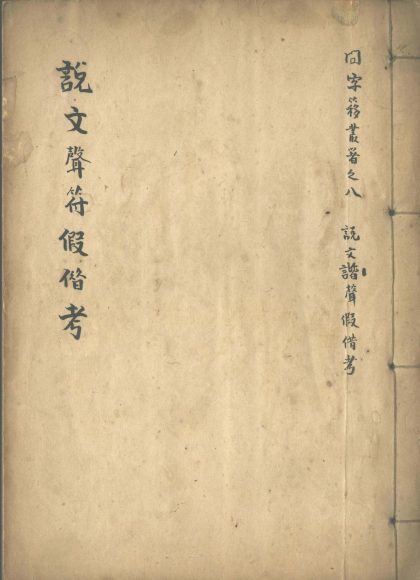 問字簃叢著之八 說文諧聲假借考
說文聲符假借考